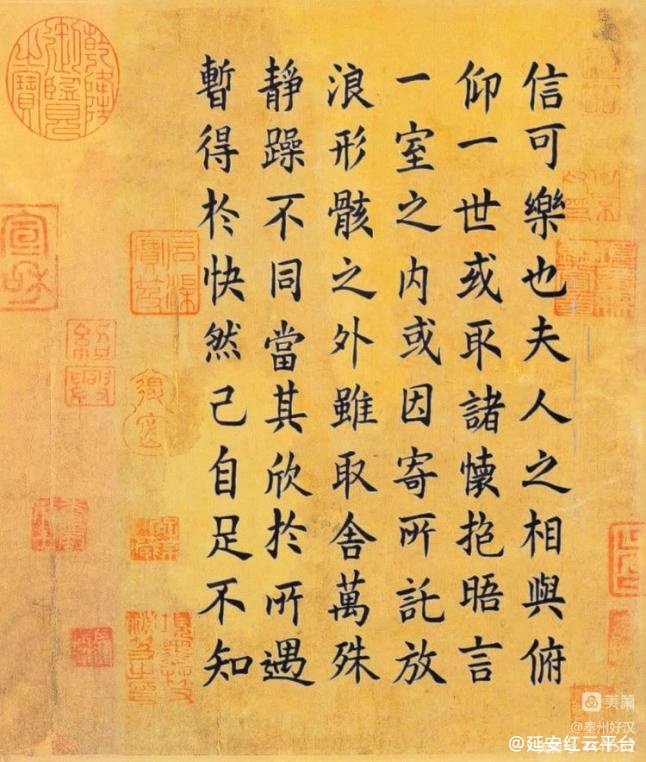 信可樂也夫人之相與俯
仰一世或取諸懷抱晤言
一室之内或因寄所託放
浪形骸之外雖取舍萬殊
靜躁不同當其欣於所遇
暫得於快然己自足不知
乾隆御覽之寶
宣和
紹興
美篇
@延安红云平台